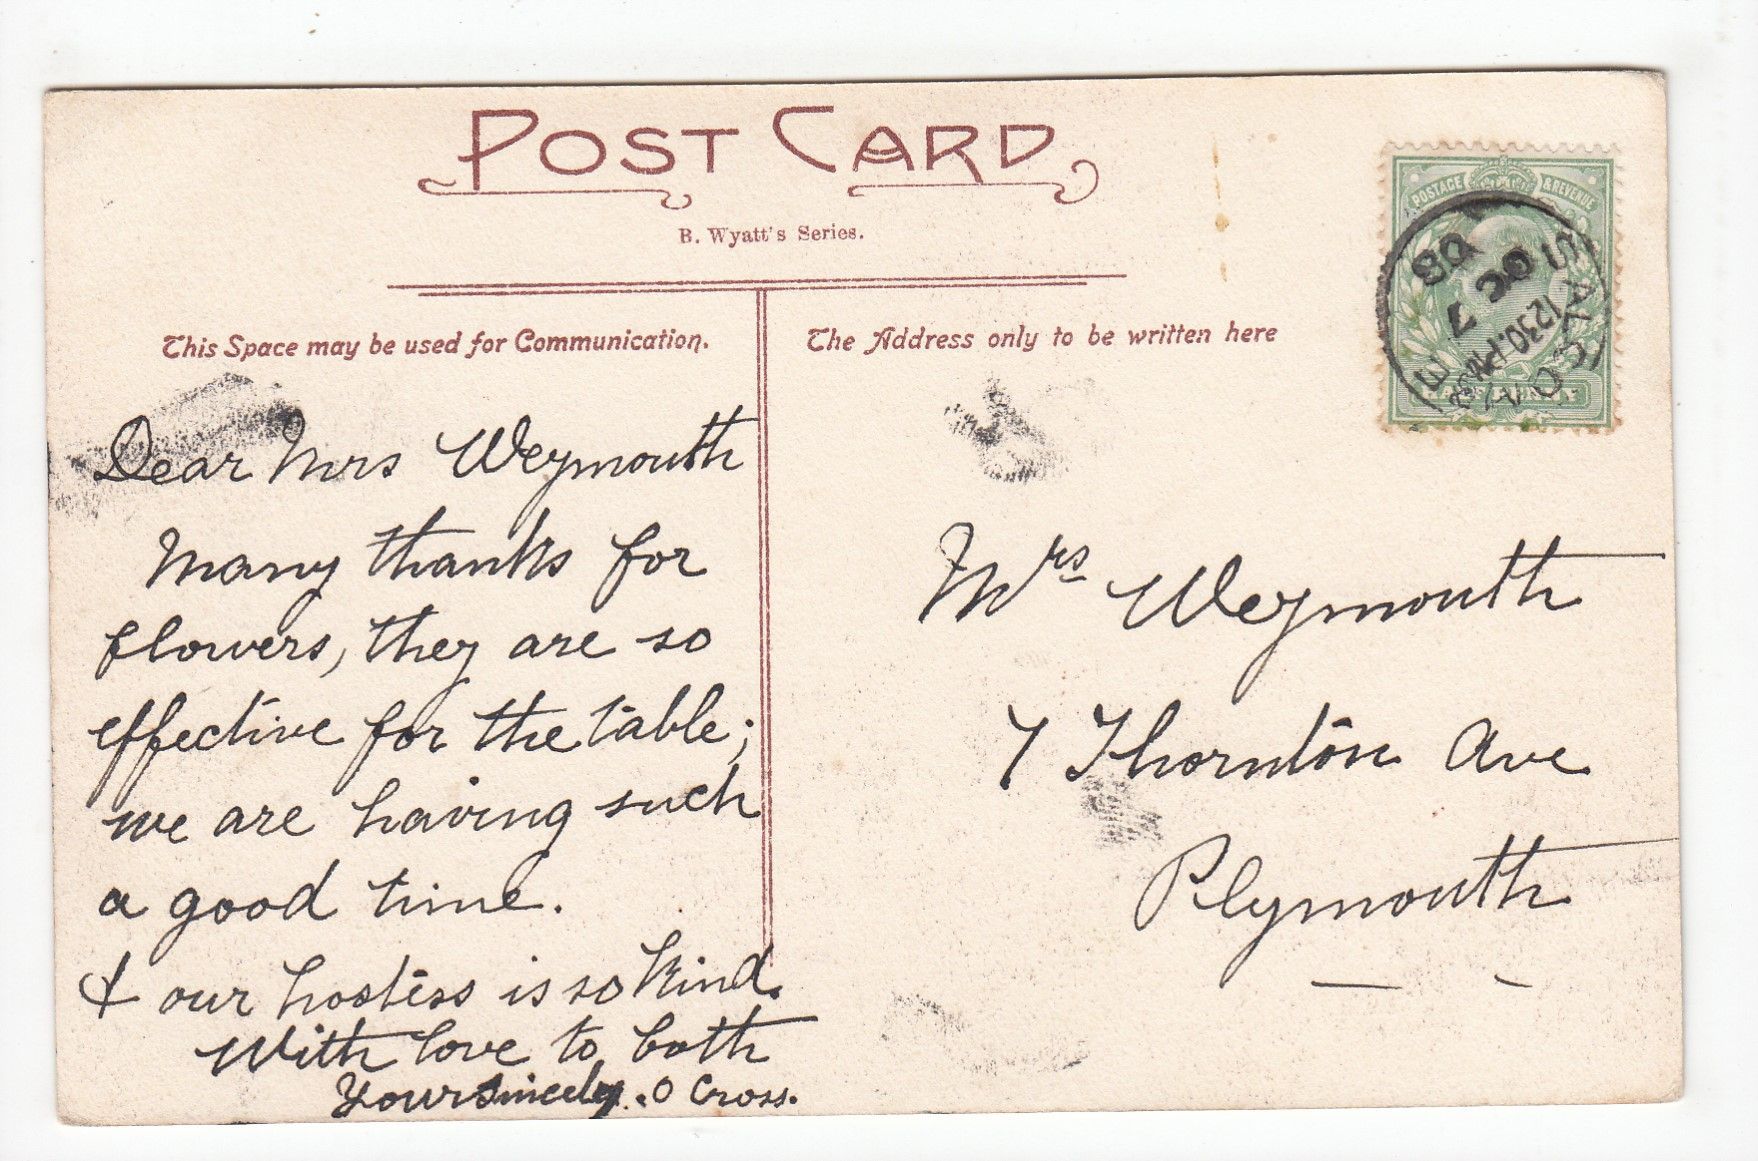 POST CARD
B. Wyatt's Series.
This Space may be used for Communication.
The Address only to be written here
POSTAGE & REVENUE
SALCOMBE
12 30.PM
OC 7
08
Dear Mrs Weymouth
Many thanks for
flowers, they are so
effective for the table;
we are having such
a good time.
& our hostess is so kind.
With love to both
Yours sincely. O Cross.
Mrs Weymouth
7 Thornton Ave
Plymouth